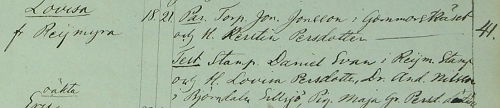 Lovisa
fr Reijmyra
18. 21.
Par. Torp. Jon. Jonsson i Gammors Näset
och H. Kerstin Persdotter
41.
Test. Stamp. Daniel Evan i Reijm. Stamp
och H. Lovisa Persdotter, Dr. And. Nilsson
i Björndalen Pig. Maja Gr. Persd.
oäkta